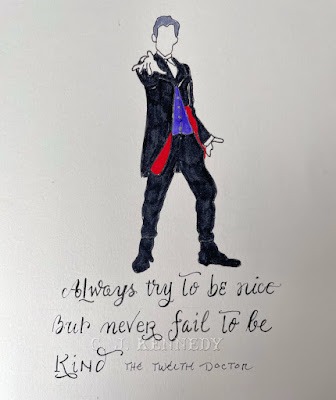 Always try to be nice
But never fail to be
Kind THE TWELTH DOCTOR
C. J. KENNEDY